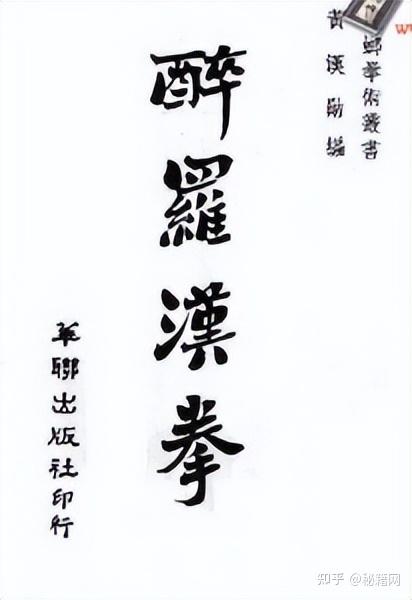 螂拳術叢書
黃漢勛編
醉羅漢拳
華聯出版社印行
知乎 @秘籍网